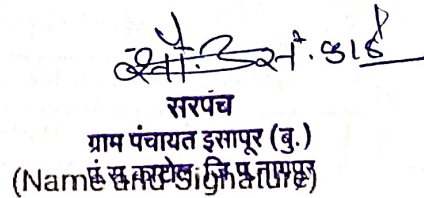 सरपंच
ग्राम पंचायत इसापूर (बु.)
पं.स. काटोल, जि.प. नागपूर
(Name and Signature)